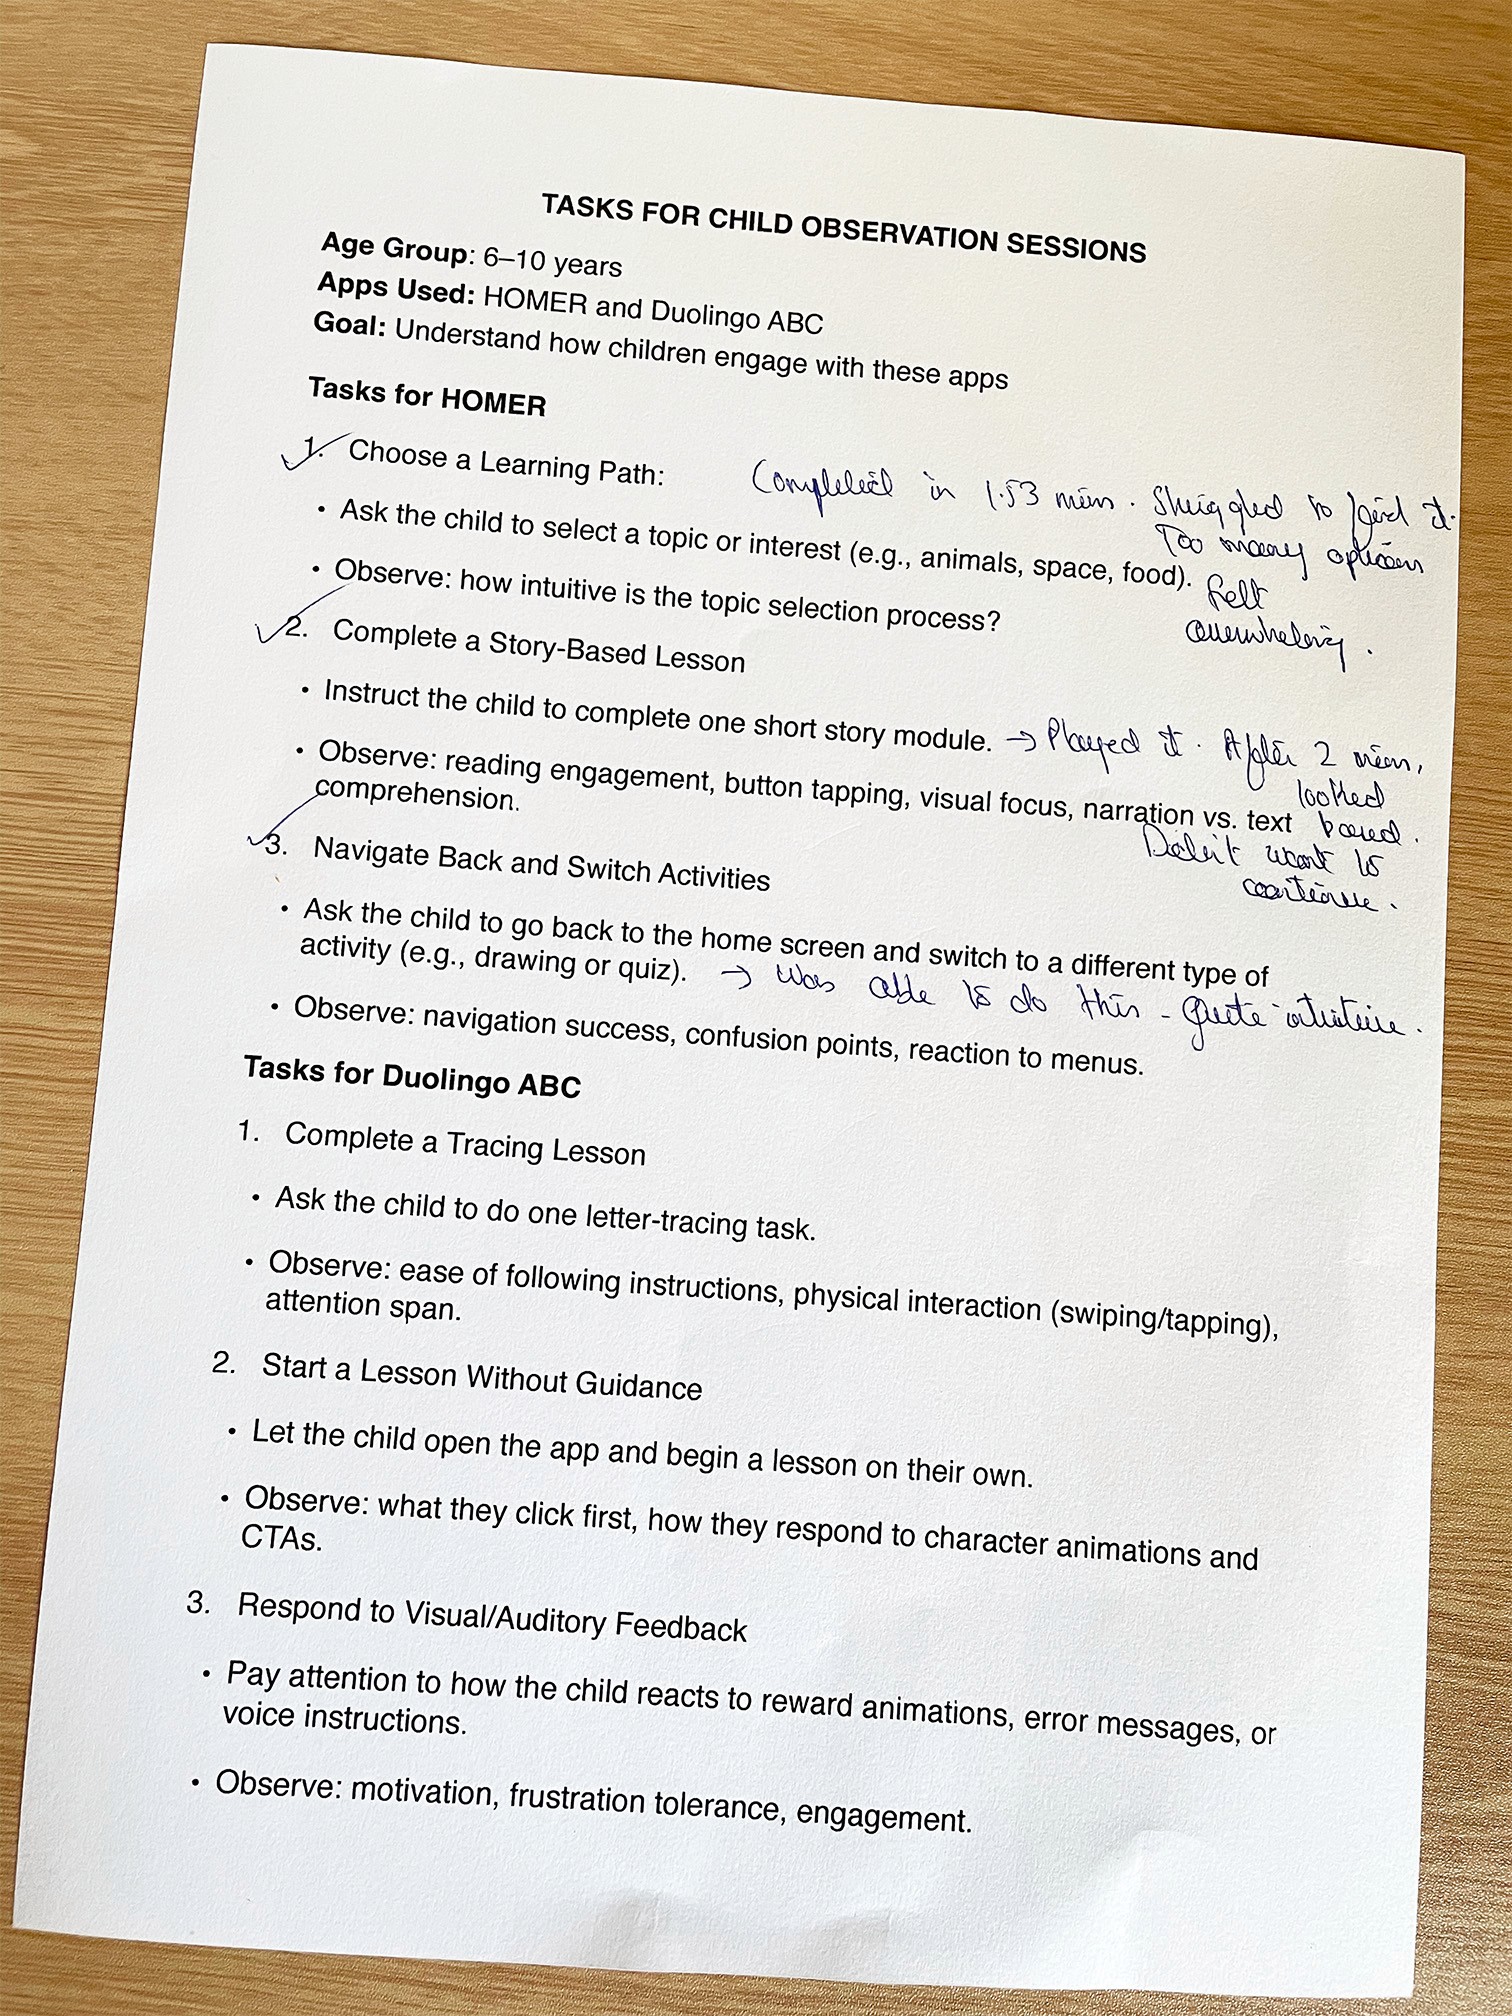 TASKS FOR CHILD OBSERVATION SESSIONS
Age Group: 6–10 years
Apps Used: HOMER and Duolingo ABC
Goal: Understand how children engage with these apps
Tasks for HOMER
1. Choose a Learning Path:
Completed in 1.53 min. Struggled to find it.
Too many options
felt
overwhelming.
• Ask the child to select a topic or interest (e.g., animals, space, food).
• Observe: how intuitive is the topic selection process?
2. Complete a Story-Based Lesson
• Instruct the child to complete one short story module.
→ Played it. After 2 min,
looked
bored.
Didn't want to
continue.
• Observe: reading engagement, button tapping, visual focus, narration vs. text
comprehension.
3. Navigate Back and Switch Activities
• Ask the child to go back to the home screen and switch to a different type of
activity (e.g., drawing or quiz).
→ Was able to do this - quite intuitive.
• Observe: navigation success, confusion points, reaction to menus.
Tasks for Duolingo ABC
1. Complete a Tracing Lesson
• Ask the child to do one letter-tracing task.
• Observe: ease of following instructions, physical interaction (swiping/tapping),
attention span.
2. Start a Lesson Without Guidance
• Let the child open the app and begin a lesson on their own.
• Observe: what they click first, how they respond to character animations and
CTAs.
3. Respond to Visual/Auditory Feedback
• Pay attention to how the child reacts to reward animations, error messages, or
voice instructions.
• Observe: motivation, frustration tolerance, engagement.